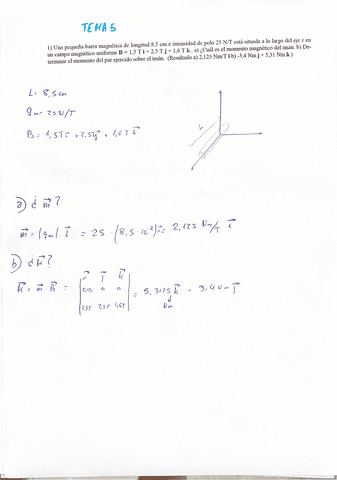 TEMA 5
1) Una pequeña barra magnética de longitud 8,5 cm e intensidad de polo 25 N/T está situada a lo largo del eje x en
un campo magnético uniforme B = 1,5 T i + 2,5 T j + 1,6 T k . a) ¿Cuál es el momento magnético del imán. b) De-
terminar el momento del par ejercido sobre el imán. (Resultado a) 2,125 Nm/T i b) -3,4 Nm j + 5,31 Nm k )
L = 8,5 cm
qm = 25 N/T
B = 1,5T i + 2,5 j + 1,6 T k
L
a) ¿ m ?
m = |qm| · l = 25 · (8,5 · 10⁻²) = 2,125 Nm/T i
b) ¿M?
i j k
M = m · B = 2,125 0 0 = 5,3125 k - 3,4 Nm j
Nm
1,5T 2,5T 1,6T